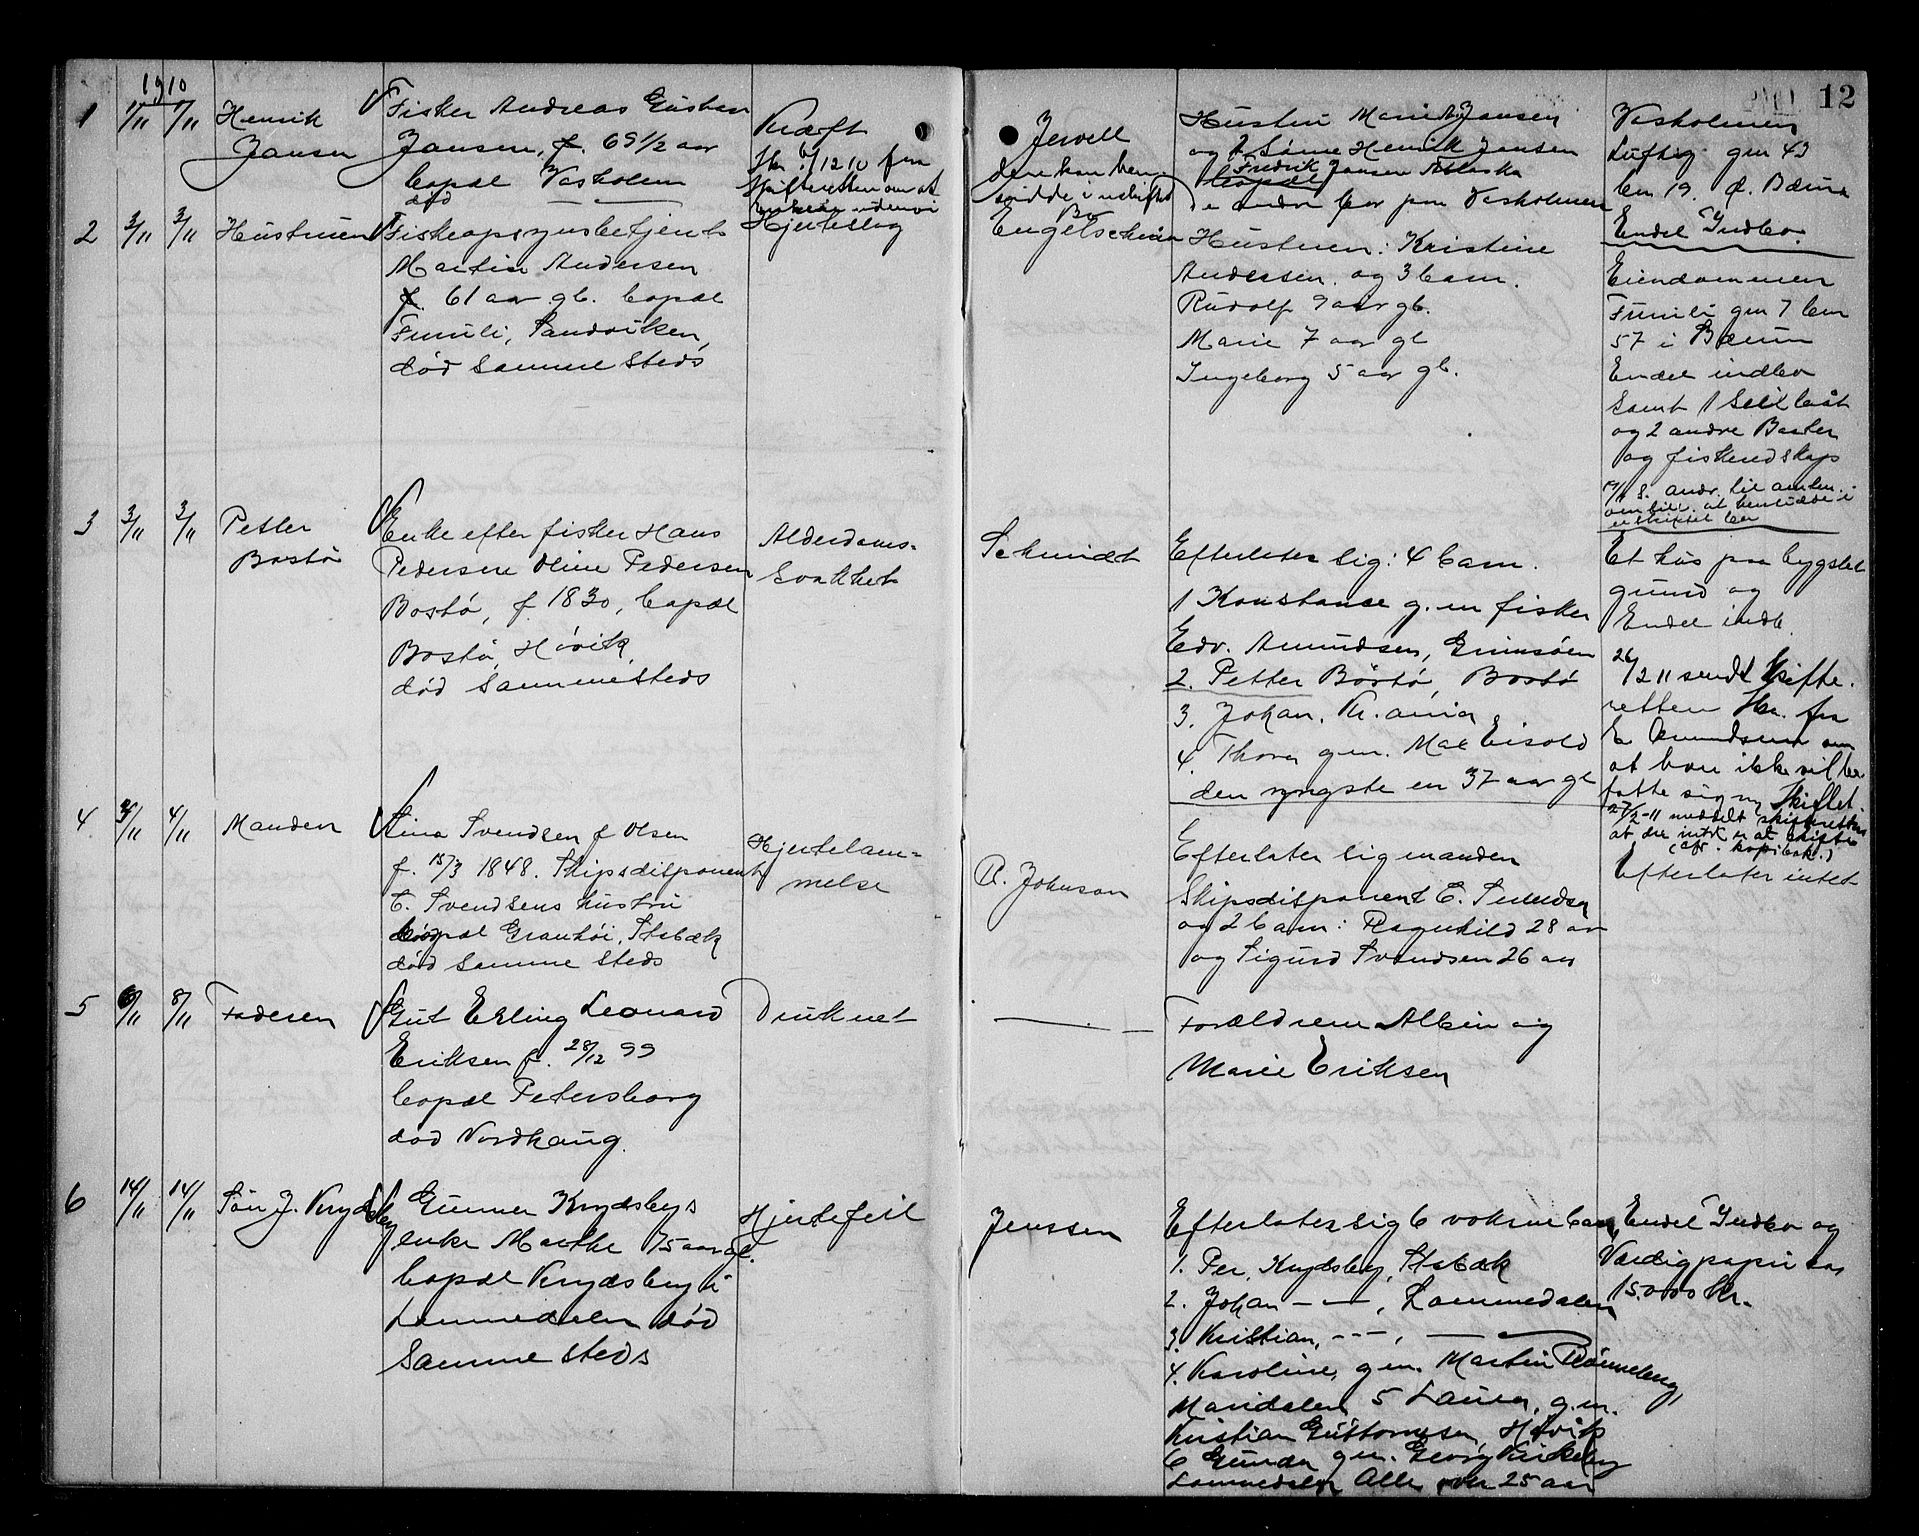 12
1910
1
1/11
1/11
Henrik
Jansen
Fisker Andreas Gustav
Jansen, f. 69 1/2 aar
bopæl Vasholmen
død — " —
Kræft
Skr. 6/12 10 fra
skifteretten om at
enken
Jervell
Hustru Marie A. Jansen
og 2 Sønne Henrik Jansen
Fredrik Jansen Alaska
De andre bor paa Vasholmen
Vasholmen
Luftig gn 43
bn 19. Ø. Bærum
Endel Indbo.
2
3/11
3/11
Hustruen
Fiskeopsynsbetjent
Martin Andersen
f. 61 aar gl. bopæl
Furuli, Sandviken,
død samme steds
Hjerteslag
Engelschiøn
Hustruen: Kristine
Andersen. og 3 barn.
Rudolf 9 aar gl.
Marie 7 aar gl
Ingeborg 5 aar gl.
Eiendommen
Furuli gn 7 bn
57 i Bærum
Endel indbo
samt 1 Seilbåt
og 2 andre Baater
og fiskeredskap
3
3/11
3/11
Petter
Bostø
Enke efter fisker Hans
Pedersen Oline Pedersen
Bostø, f. 1830, bopæl
Bostø, Høvik,
død sammesteds
Alderdoms-
svakhet
Schmidt
Efterlater sig: 4 barn.
1 Konstanse g. m fisker
Edv. Amundsen, Grimsøen
2. Petter Børstø, Bostø
3. Johan, Kr.ania
4. Thora gm. Max Eisold
den yngste en 37 aar gl
Et hus paa bygslet
grund og
Endel indb.
26/2 11 sendt Skifte-
retten Skr. fra
E Amundsen om
at han ikke vil be-
fatte sig m Skiftet.
27/2-11 meddelt skifteretten
at der intet er at skifte
(cfr. kopibok.)
4
3/11
4/11
Manden
Lina Svendsen f Olsen
f. 15/3 1848. Skipsdisponent
C. Svendsens hustru
bopæl Granhøi, Stabæk
død samme steds
Hjertelam-
melse
R. Johnson
Efterlater sig manden
Skipsdisponent C. Svendsen
og 2 barn: Ragnhild 28 aar
og Sigurd Svendsen 26 aar
Efterlater intet
5
8/11
8/11
Faderen
Gut Erling Leonard
Eriksen f. 28/12 99
bopæl Petersborg
død Nordhaug.
Druknet
— " —
Forældrene Albin og
Marie Eriksen
6
14/11
14/11
Søn J. Krydsby
Gunner Krydsbys
enke Marthe 75 aar gl.
bopæl Krydsby i
Lommedalen død
samme steds
Hjertefeil
Jenssen
Efterlater sig 6 voksne barn
1. Per, Krydsby, Stabæk
2. Johan — " —, Lommedalen
3. Kristian, - " -, — " —
4. Karoline, gm. Martin Rønneberg,
Maridalen 5 Laura, g.m.
Kristian Guttormsen, Høvik
6 Gunda gm. Georg Kirkeby
Lommedalen Alle over 25 aar
Endel Indbo og
Værdipapir ca
15.000 kr.